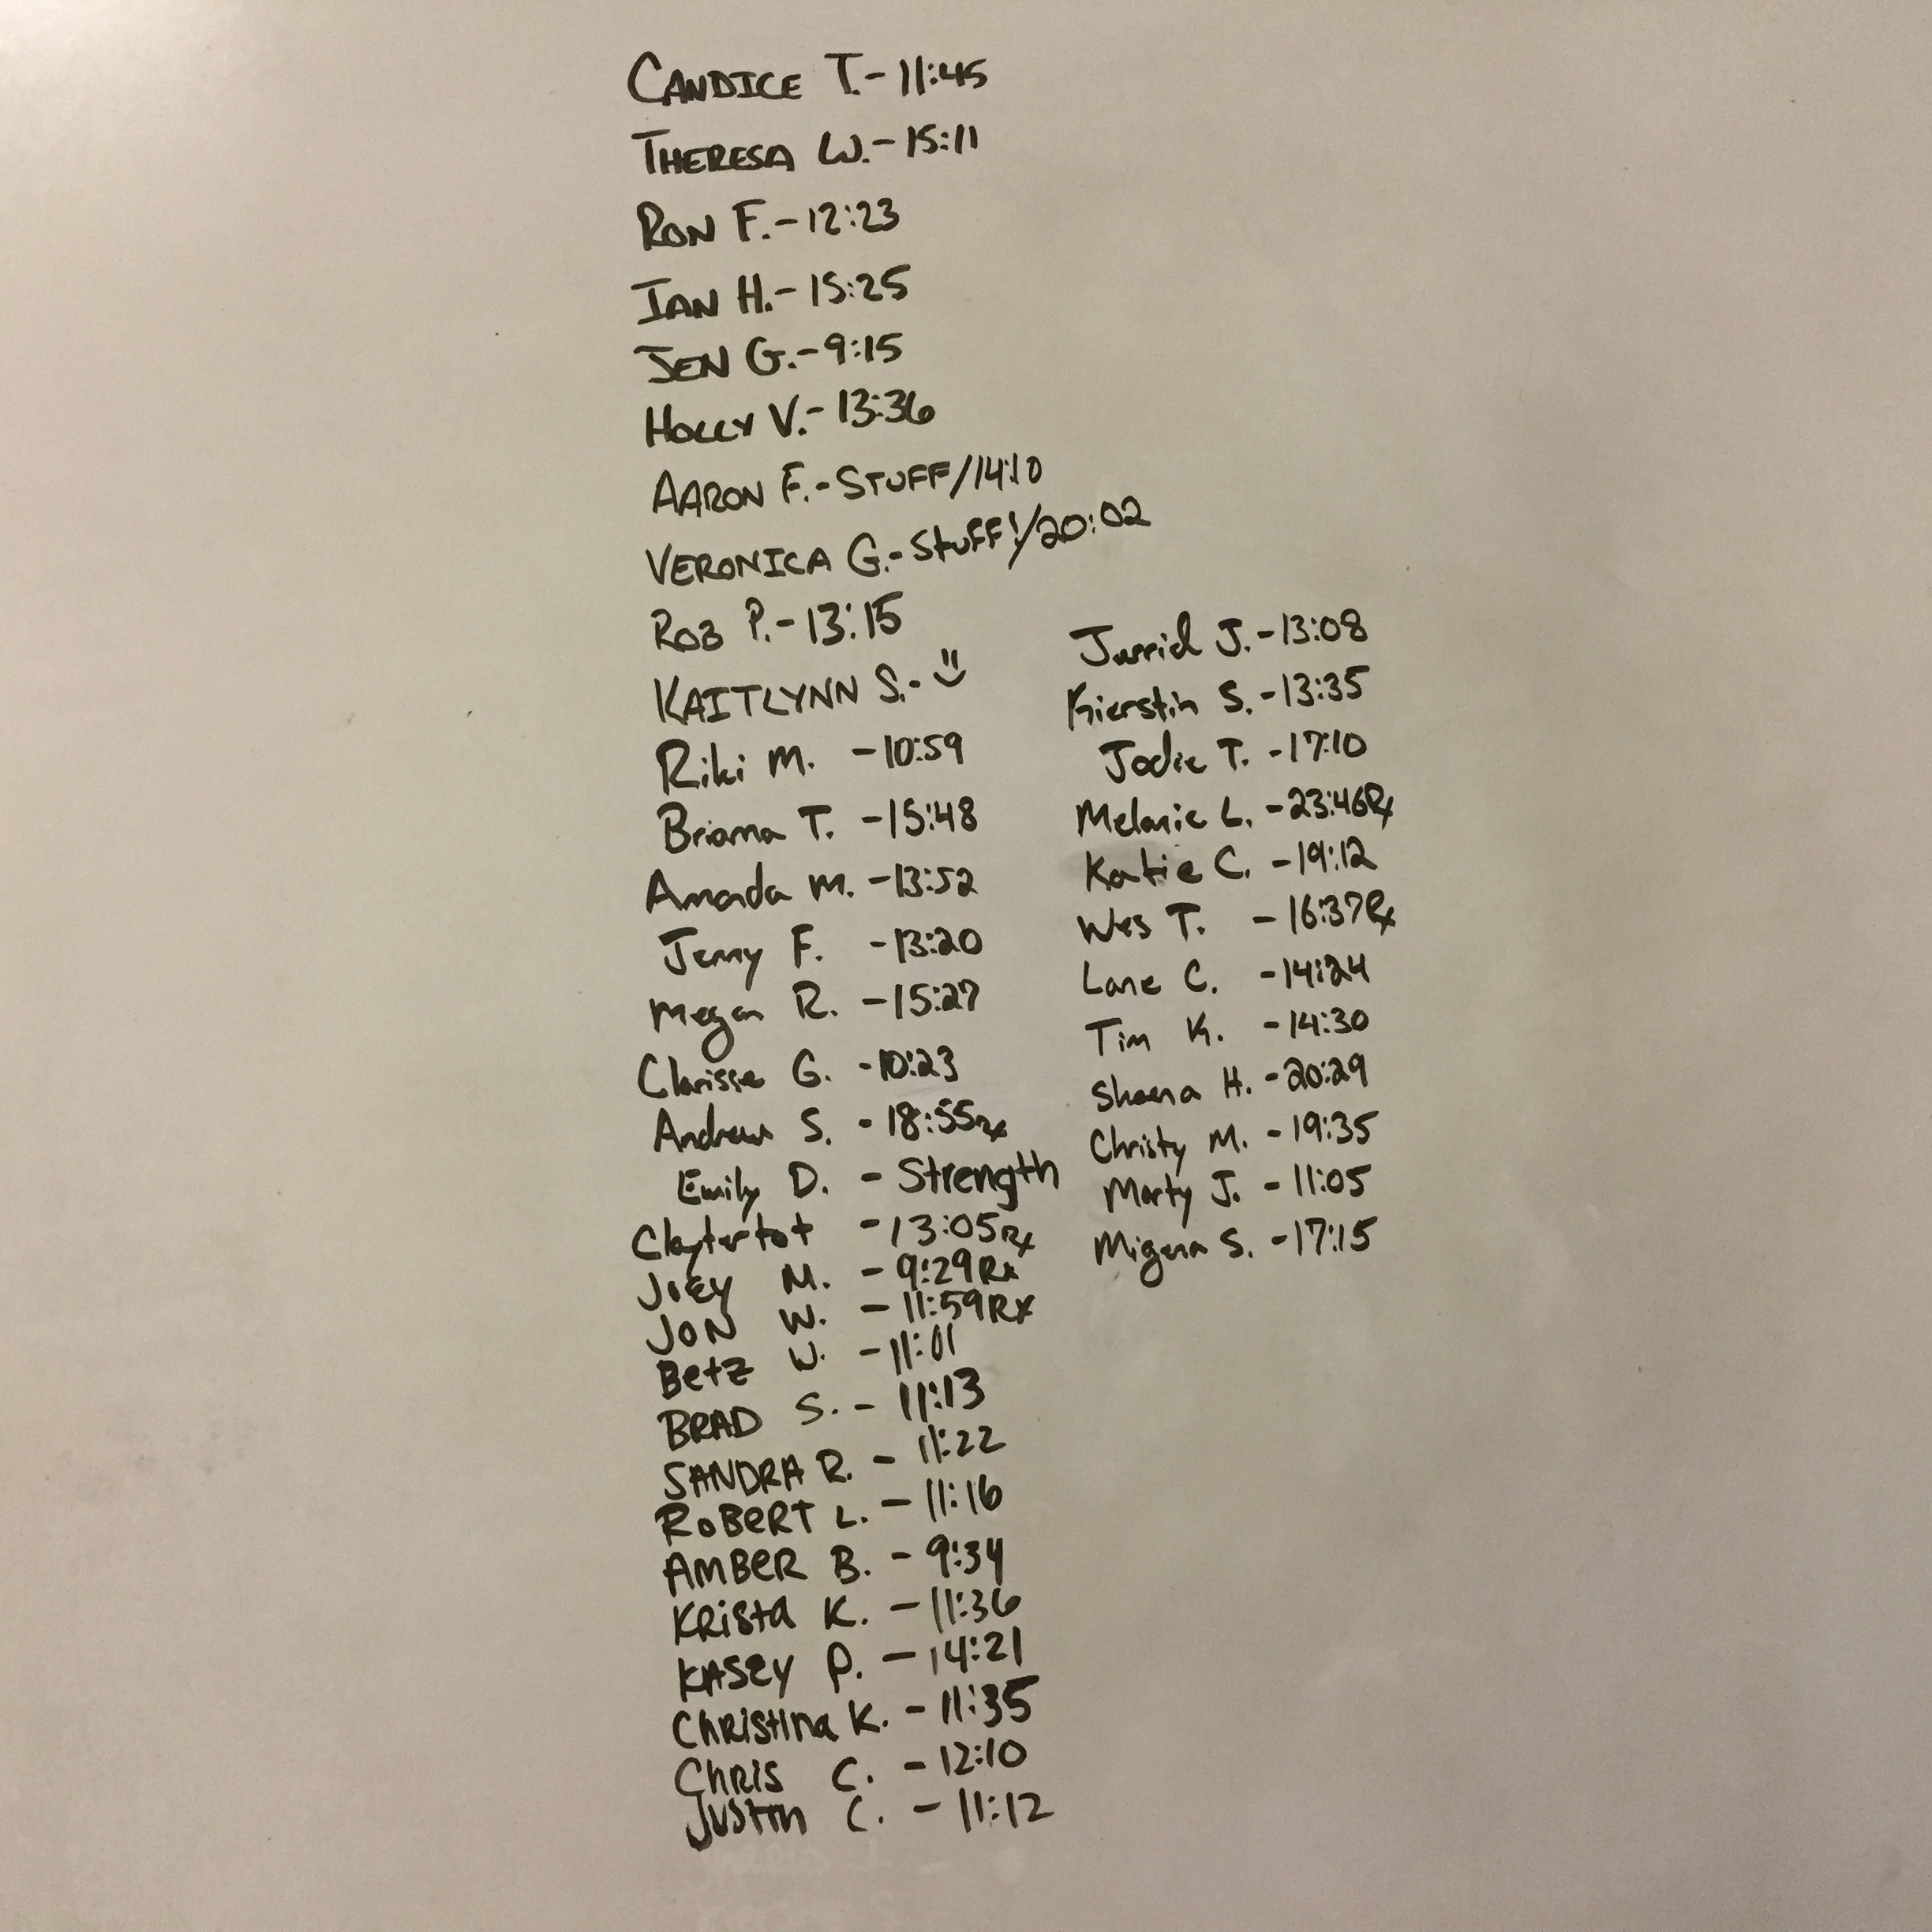 CANDICE T. - 11:45
THERESA W. - 15:11
RON F. - 12:23
IAN H. - 15:25
JEN G. - 9:15
HOLLY V. - 13:36
AARON F. - STUFF/14:10
VERONICA G. - STUFF!/20:02
ROB P. - 13:15
KAITLYNN S. - "
Riki M. - 10:59
Briana T. - 15:48
Amanda M. - 13:52
Jenny F. - 13:20
Megan R. - 15:27
Clarisse G. - 10:23
Andrew S. - 18:55Rx
Emily D. - Strength
Claytertot - 13:05Rx
JOEY M. - 9:29Rx
JON W. - 11:59Rx
Betz W. - 11:01
BRAD S. - 11:13
SANDRA R. - 11:22
ROBERT L. - 11:16
AMBER B. - 9:34
KRista K. - 11:36
KASEY P. - 14:21
ChRistina K. - 11:35
ChRis C. - 12:10
Justin C. - 11:12
Jarrid J. - 13:08
Kierstin S. - 13:35
Jodie T. - 17:10
Melanie L. - 23:46Rx
Katie C. - 19:12
Wes T. - 16:37Rx
Lane C. - 14:24
Tim K. - 14:30
Sheena H. - 20:29
Christy M. - 19:35
Marty J. - 11:05
S. - 17:15